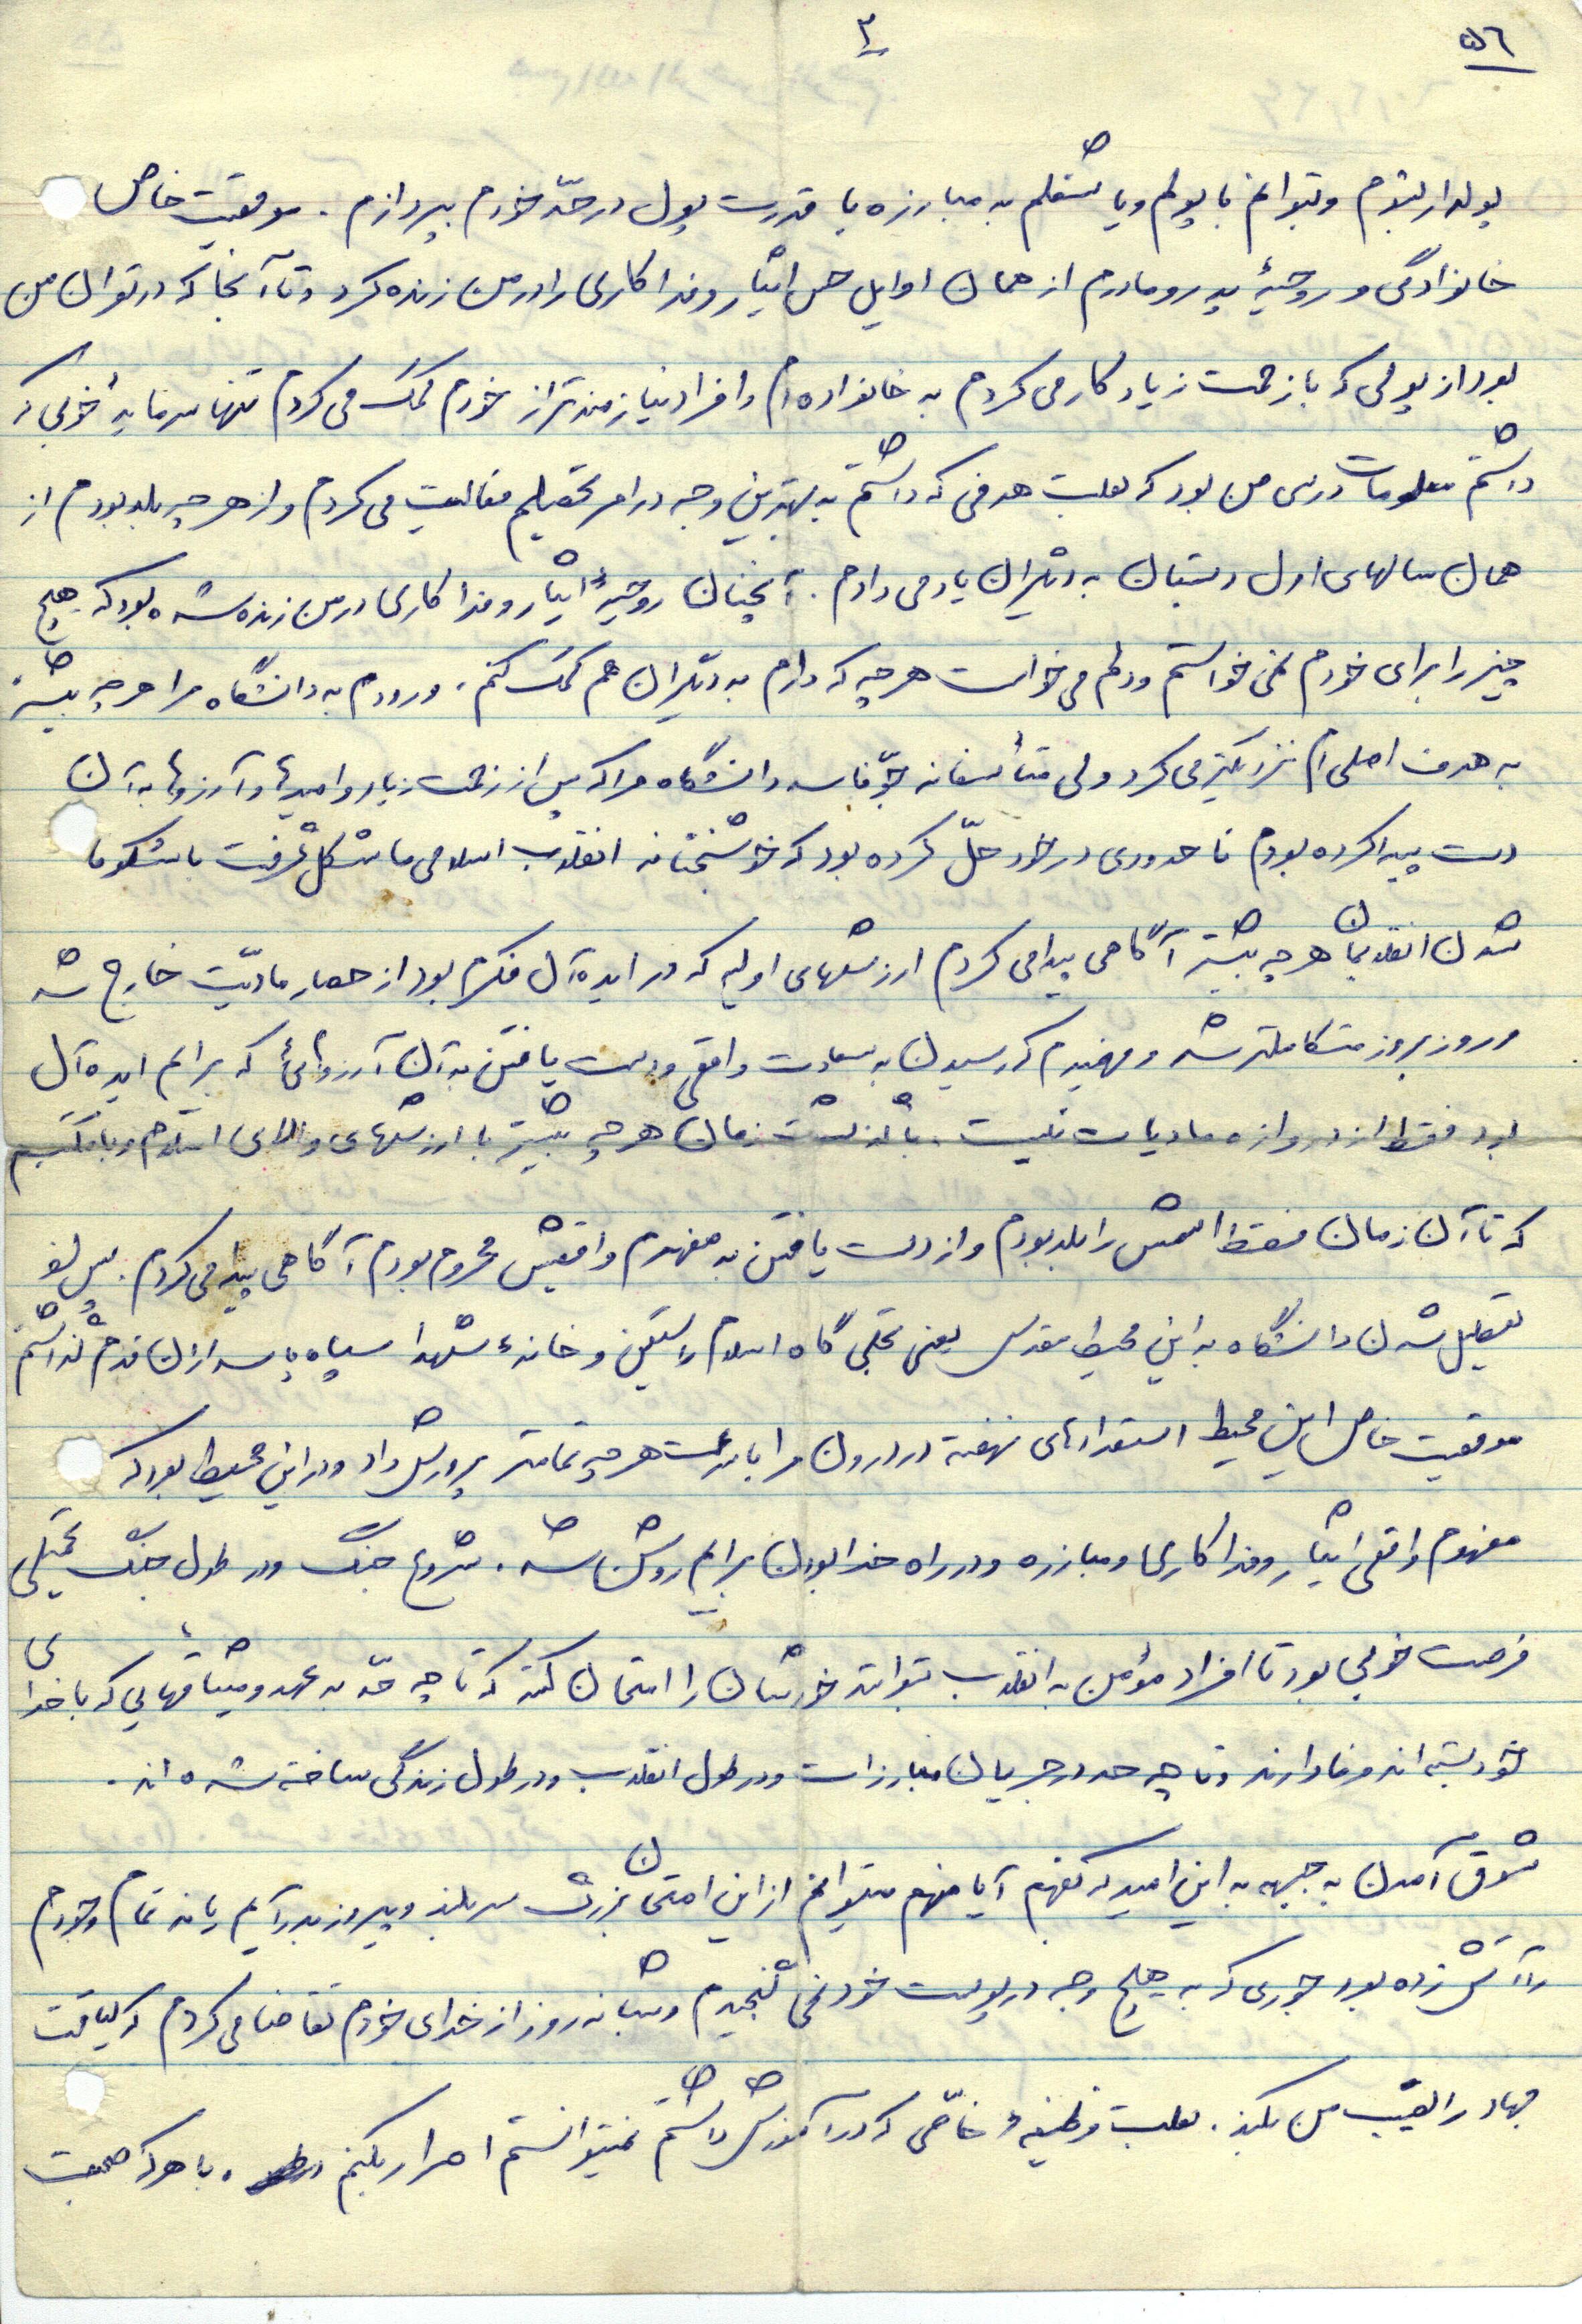 ۵٦
۳
پولدار بشوم و بتوانم با پولم و یا شغلم به مبارزه با قدرت پول در حدّ خودم بپردازم. موقعیت خاص
خانوادگی و روحیهٔ پدر و مادرم از همان اوایل حس ایثار و فداکاری را در من زنده کرد و تا آنجا که در توان من
بود از پولی که با زحمت زیاد کار می کردم به خانواده ام و افراد نیازمندتر از خودم کمک می کردم تنها سرمایهٔ خوبی که
داشتم معلومات درسی من بود که بعلت هدفی که داشتم به بهترین وجه در امر تحصیلم فعالیت می کردم و از هر چه بلد بودم از
همان سالهای اول دبستان به دیگران یاد می دادم. آنچنان روحیهٔ ایثار و فداکاری در من زنده شده بود که هیچ
چیز را برای خودم نمی خواستم و دلم می خواست هر چه که دارم به دیگران هم کمک کنم. ورودم به دانشگاه مرا هر چه بیشتر
به هدف اصلی ام نزدیکتر می کرد ولی متأسفانه جوّ فاسد دانشگاه مرا که پس از زحمت زیاد و امیدها و آرزوها به آن
دست پیدا کرده بودم تا حدودی در خود حلّ کرده بود که خوشبختانه انقلاب اسلامی ما شکل گرفت با شکوفا
شدن انقلابمان هر چه بیشتر آگاهی پیدا می کردم ارزشهای اولیه که در ایده آل فکرم بود از حصار مادیّت خارج شد
و روز بروز متکاملتر شد و فهمیدم که رسیدن به سعادت واقعی و دست یافتن به آن آرزوهائی که برایم ایده آل
بود فقط از دروازه مادیات نیست. با گذشت زمان هر چه بیشتر با ارزشهای والای اسلام و با مکتبم
که تا آن زمان فقط اسمش را بلد بودم و از دست یافتن به مفهوم واقعیش محروم بودم آگاهی پیدا می کردم. پس از
تعطیل شدن دانشگاه به این محیط مقدس یعنی تجلی گاه اسلام راستین و خانهٔ شهدا سپاه پاسداران قدم گذاشتم
موقعیت خاص این محیط استعدادهای نهفته در درون مرا با سرعت هر چه تمامتر پرورش داد و در این محیط بود که
مفهوم واقعی ایثار و فداکاری و مبارزه و در راه خدا بودن برایم روشن شد. شروع جنگ و در طول جنگ تحمیلی
فرصت خوبی بود تا افراد مؤمن به انقلاب بتوانند خودشان را امتحان کنند که تا چه حدّ به عهد و میثاقهایی که با خدای
خود بسته اند وفا دارند و تا چه حد در جریان مبارزات و در طول انقلاب و در طول زندگی ساخته شده اند.
شوق آمدن به جبهه به این امید که بفهمم آیا منهم میتوانم از این امتحان بزرگ سربلند و پیروز بدر آیم یا نه تمام وجودم
را آتش زده بود جوری که به هیچ وجه در پوست خود نمی گنجیدم و شبانه روز از خدای خودم تقاضا می کردم که لیاقت
جهاد را نصیب من بکند. بعلت وظیفهٔ خاصّی که در آموزش داشتم نمیتوانستم اصرار بکنم. با هر که صحبت